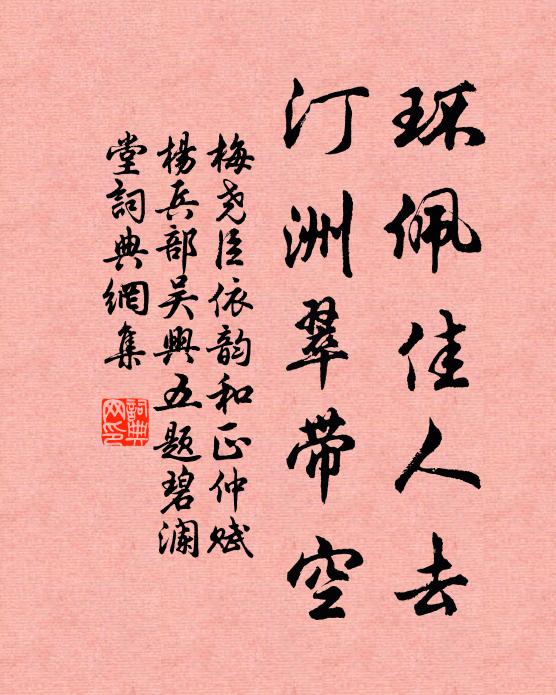 环佩佳人去
汀洲翠带空
梅尧臣依韵和正仲赋
杨兵部吴兴五题碧澜
堂词典网集
词典网印